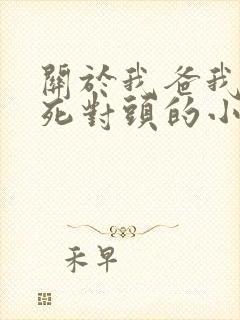 關於我爸我
死對頭的小
禾早